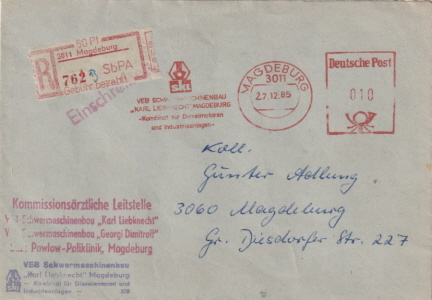 50 Pf
3011 Magdeburg
R
SbPA
762
Gebühr bezahlt
Einschreiben
SKL
VEB SCHWERMASCHINENBAU
„KARL LIEBKNECHT" MAGDEBURG
-Kombinat für Dieselmotoren
und Industrieanlagen-
MAGDEBURG
3011
27.12.85
Deutsche Post
010
Koll.
Günter Adlung
3060 Magdeburg
Gr. Diesdorfer Str. 227
Kommissionsärztliche Leitstelle
Schwermaschinenbau „Karl Liebknecht"
Schwermaschinenbau „Georgi Dimitroff"
Pawlow-Poliklinik, Magdeburg
VEB Schwermaschinenbau
„Karl Liebknecht" Magdeburg
- Kombinat für Dieselmotoren und
Industrieanlagen -